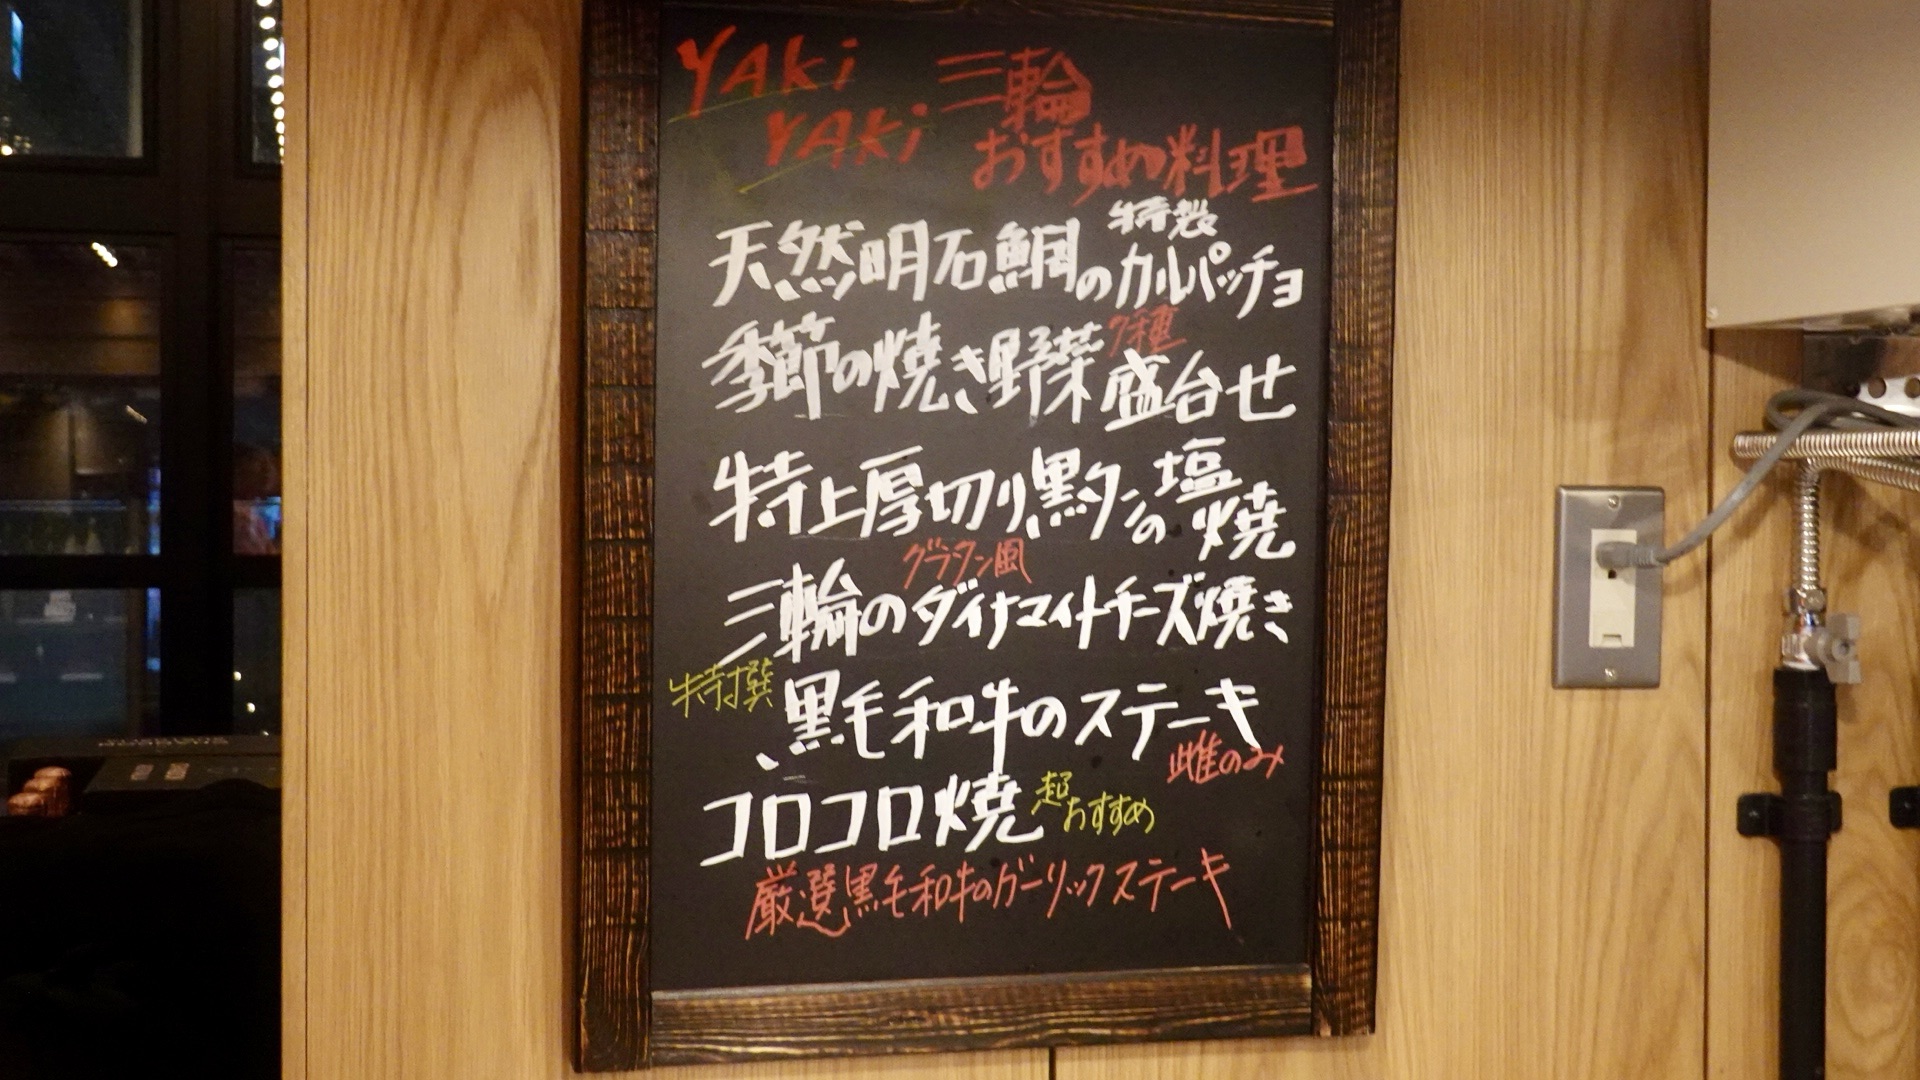 YAKi
YAKi 三輪
おすすめ料理
特製
天然明石鯛のカルパッチョ
7種
季節の焼き野菜盛合せ
特上厚切り黒タンの塩焼
グラタン風
三輪のダイナマイトチーズ焼き
特撰 黒毛和牛のステーキ
雌のみ
コロコロ焼 超おすすめ
厳選黒毛和牛のガーリックステーキ